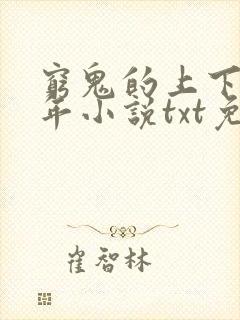 窮鬼的上下
年小說txt免
崔智林